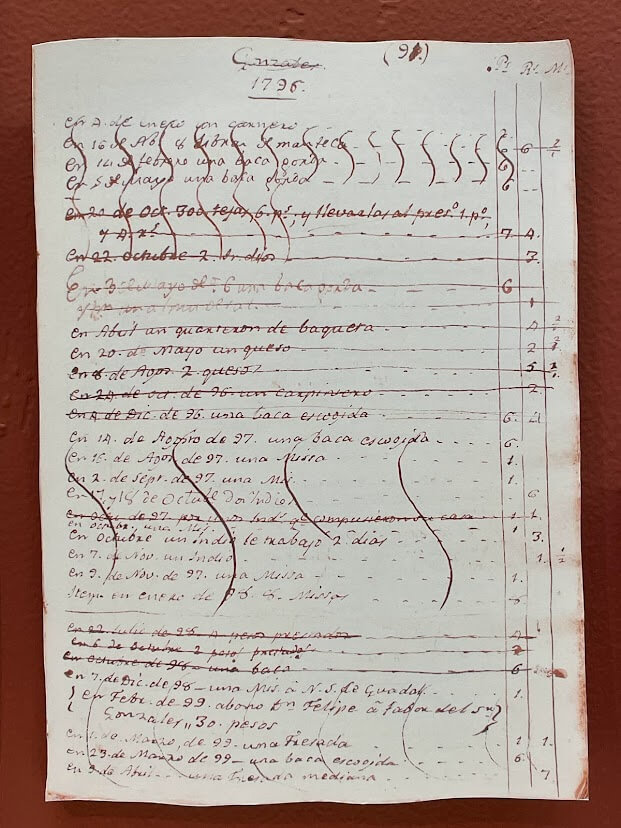 Gonzales (91.)
1796. Ps Rs Ms
en 7. de enero un carnero
en 16 de Ab. 8 libras de manteca 6
en 14 de febrero una baca gorda 6
en 5 de Mayo una baca gorda 6
en 20 de Oct. 300 tejas 6. ps, y llevarlas al pres.o 1. po,
y 4. rs. 7. 4.
en 22. Octubre 2. Indios 3.
En 3 de Mayo de 96 una baca gorda 6
1
en Abril un quarteron de baqueta 4
en 20. de Mayo un queso 2
en 8. de Agos. 2. quesos 5
en 24 de oct. de 96. un carpintero 2.
en 4 de Dic. de 96. una baca escogida 6. 4
en 14. de Agosto de 97. una baca escogida 6.
en 15. de Agos. de 97. una Missa 1.
en 2. de Sept. de 97. una Mis. 1.
en 17 y 18 de Octubre dos Indios 6
en Octu. de 97. por unos Inds. qe compusieron su casa 1 1
en Octubre, una Mis.
en Octubre un Indio le trabajo 2. dias 3.
en 7. de Nov. un Indio 1. 1/2
en 9. de Nov. de 97. una Missa 1.
Item en enero de 98. 8. Missas 8
en 22. Julio de 98. 4 pesos prestados 4
en 6 de Octubre 2 pesos prestados 2
en Octubre de 98 - una baca 6
en 7. de Dic. de 98 - una Mis. â N. S. de Guadal. 1.
en Febr. de 99. abono Dn Felipe â favor del Sr
Gonzales,, 30. pesos
en 1. de Marzo, de 99. una Fresada 1 1.
en 23. de Marzo de 99 - una baca escogida 6.
en 9 de Abril - una Fresada mediana 7